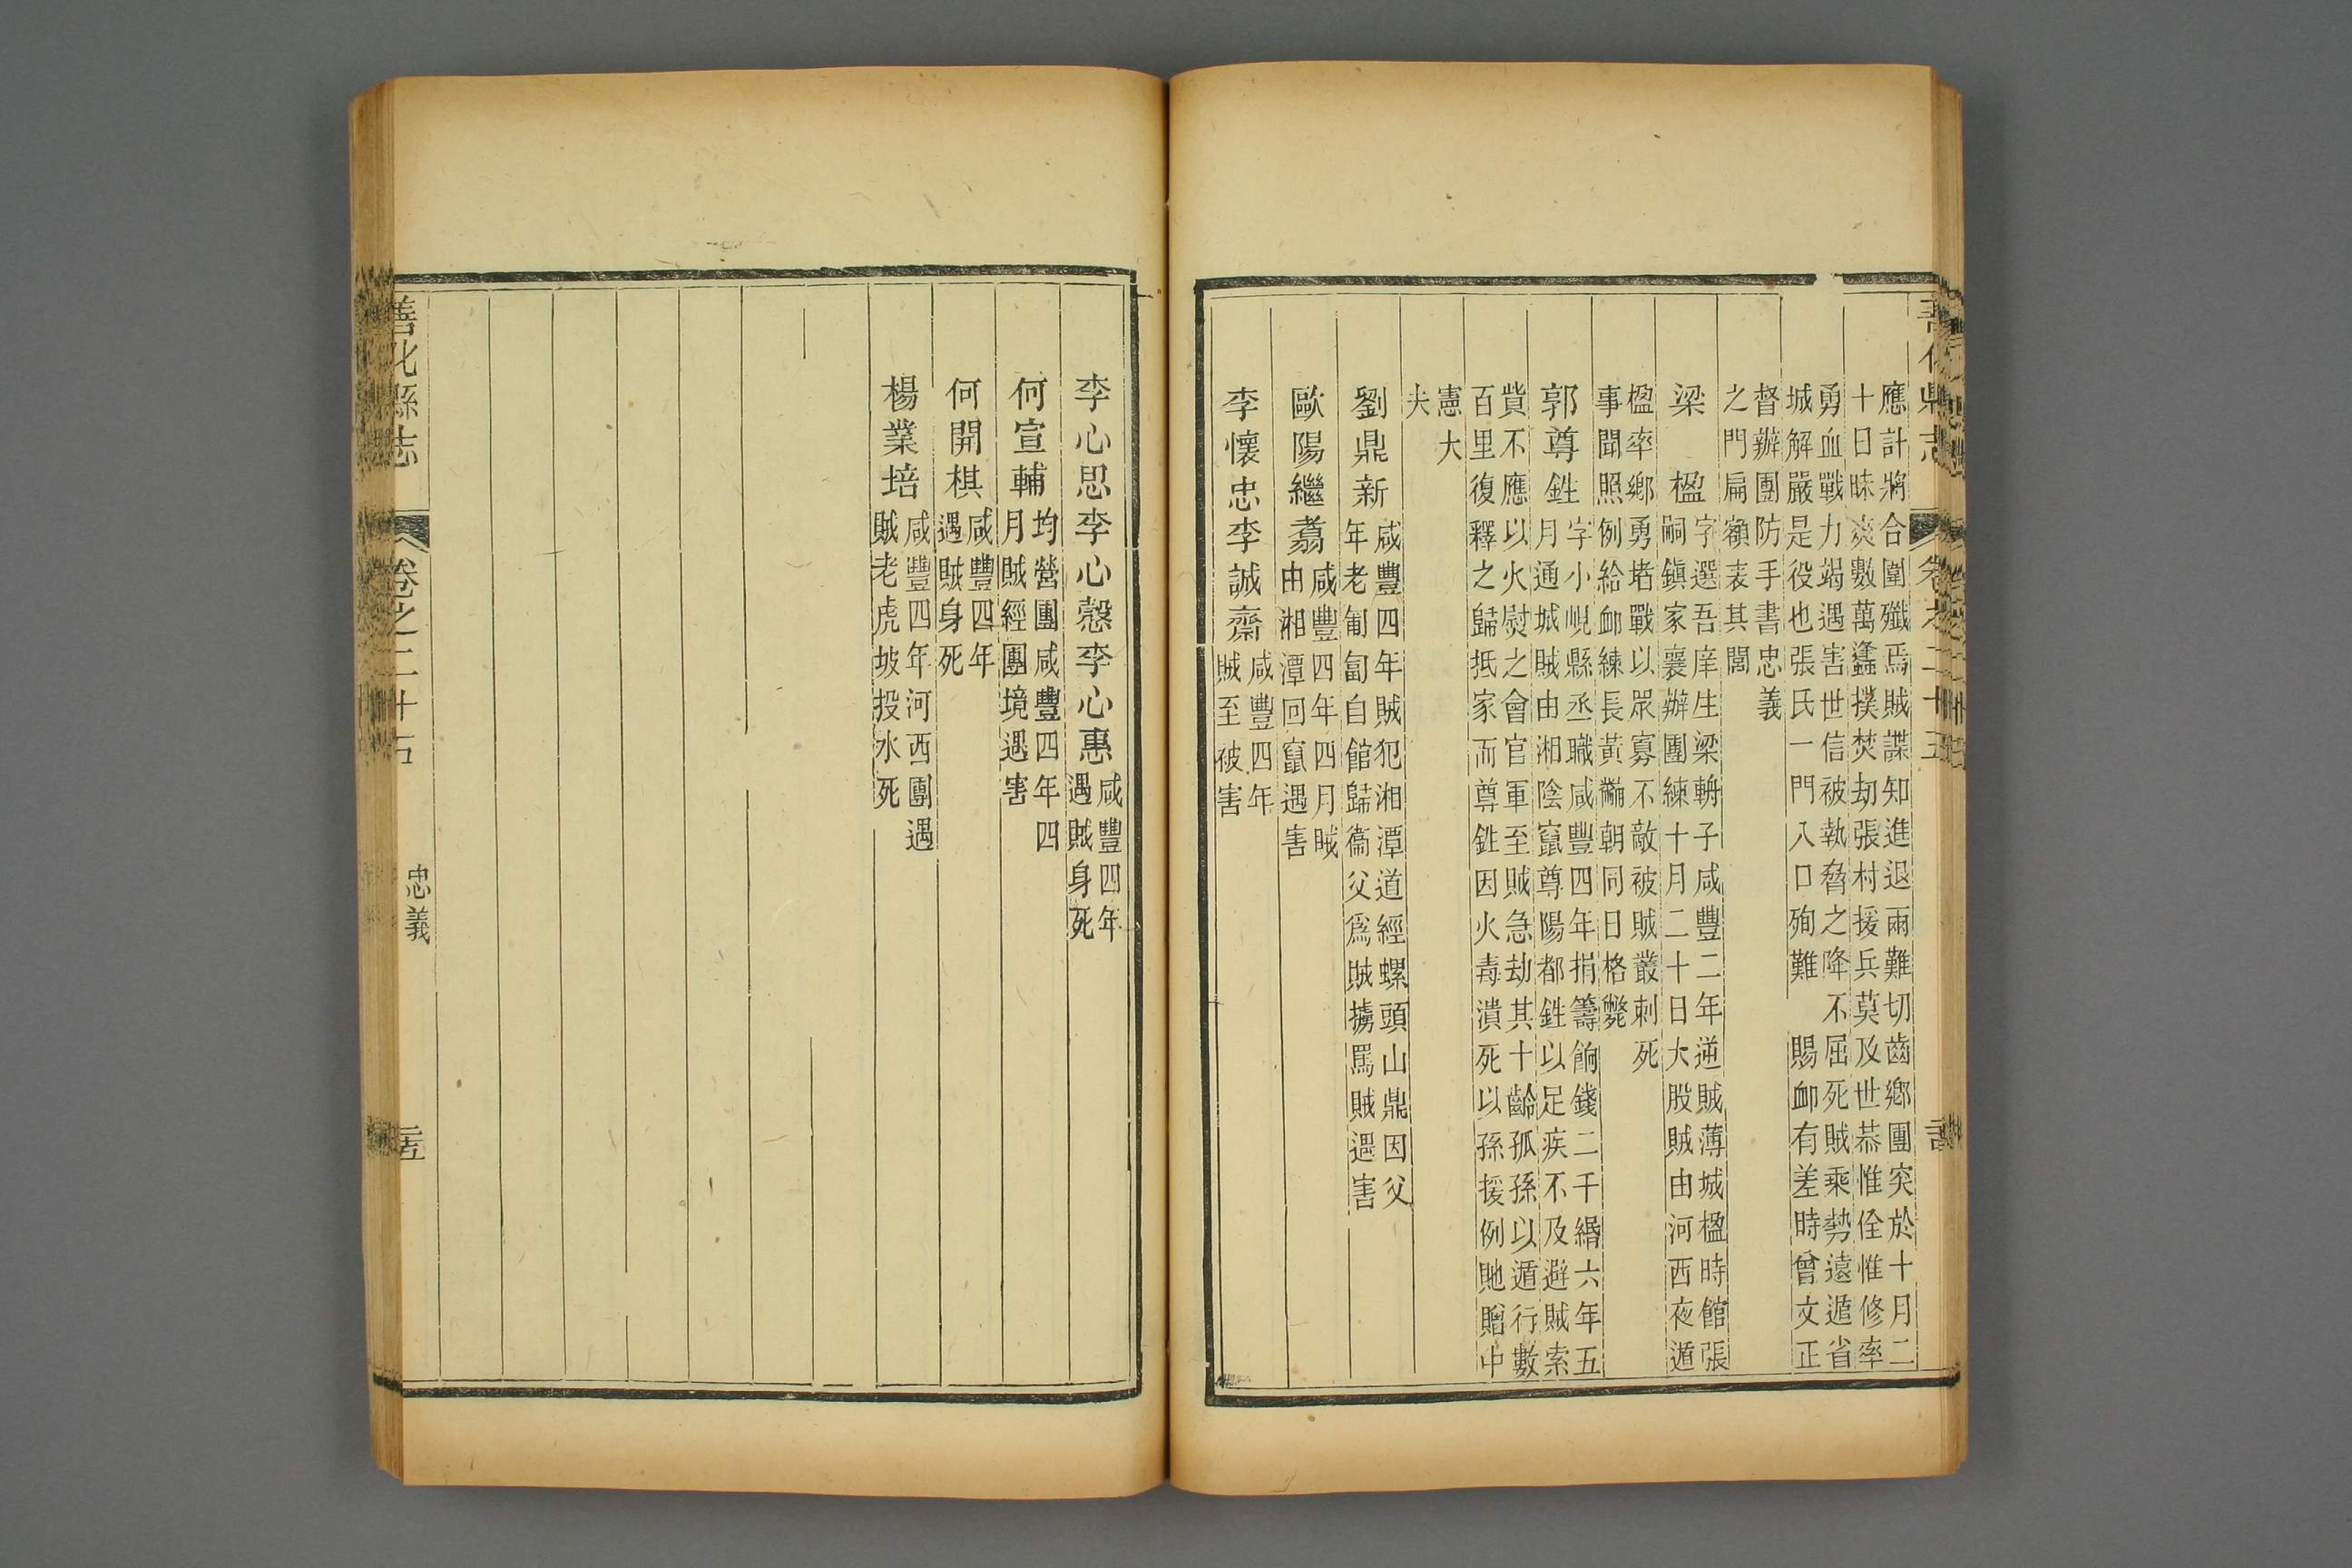 善化縣志
卷之二十五
應計將合圍殲焉賊諜知進退兩難切齒鄉團突於十月二
十日昧爽數萬蠭撲焚劫張村援兵莫及世恭惟佺惟修率
勇血戰力竭遇害世信被執脅之降不屈死賊乘勢遠遁省
城解嚴是役也張氏一門入口殉難 賜卹有差時曾文正
督辦團防手書忠義
之門扁額表其閭
梁 楹字選吾庠生梁輈子咸豐二年逆賊薄城楹時館張
嗣鎭家襄辦團練十月二十日大股賊由河西夜遁
楹率鄉勇堵戰以眾寡不敵被賊叢刺死
事聞照例給卹練長黃黼朝同日格斃
郭尊鉎字小峴縣丞職咸豐四年捐籌餉錢二千緡六年五
月通城賊由湘陰竄尊陽都鉎以足疾不及避賊索
貲不應以火熨之會官軍至賊急劫其十齡孤孫以遁行數
百里復釋之歸抵家而尊鉎因火毒潰死以孫援例貤贈中
憲大
夫
劉鼎新咸豐四年賊犯湘潭道經螺頭山鼎因父
年老匍匐自館歸衞父爲賊擄罵賊遇害
歐陽繼翥咸豐四年四月賊
由湘潭回竄遇害
李懷忠李誠齋咸豐四年
賊至被害
李心思李心慤李心惠咸豐四年
遇賊身死
何宣輔均營團咸豐四年四
月賊經團境遇害
何開棋咸豐四年
遇賊身死
楊業培咸豐四年河西團遇
賊老虎坡投水死
善化縣志
卷之二十五
忠義